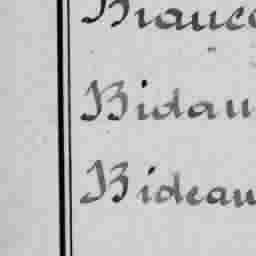 Biauc
Bidau
Bideau